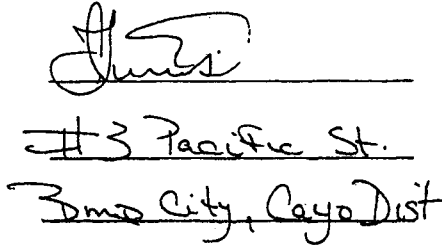 #3 Pacific St.
Bmo City, Cayo Dist